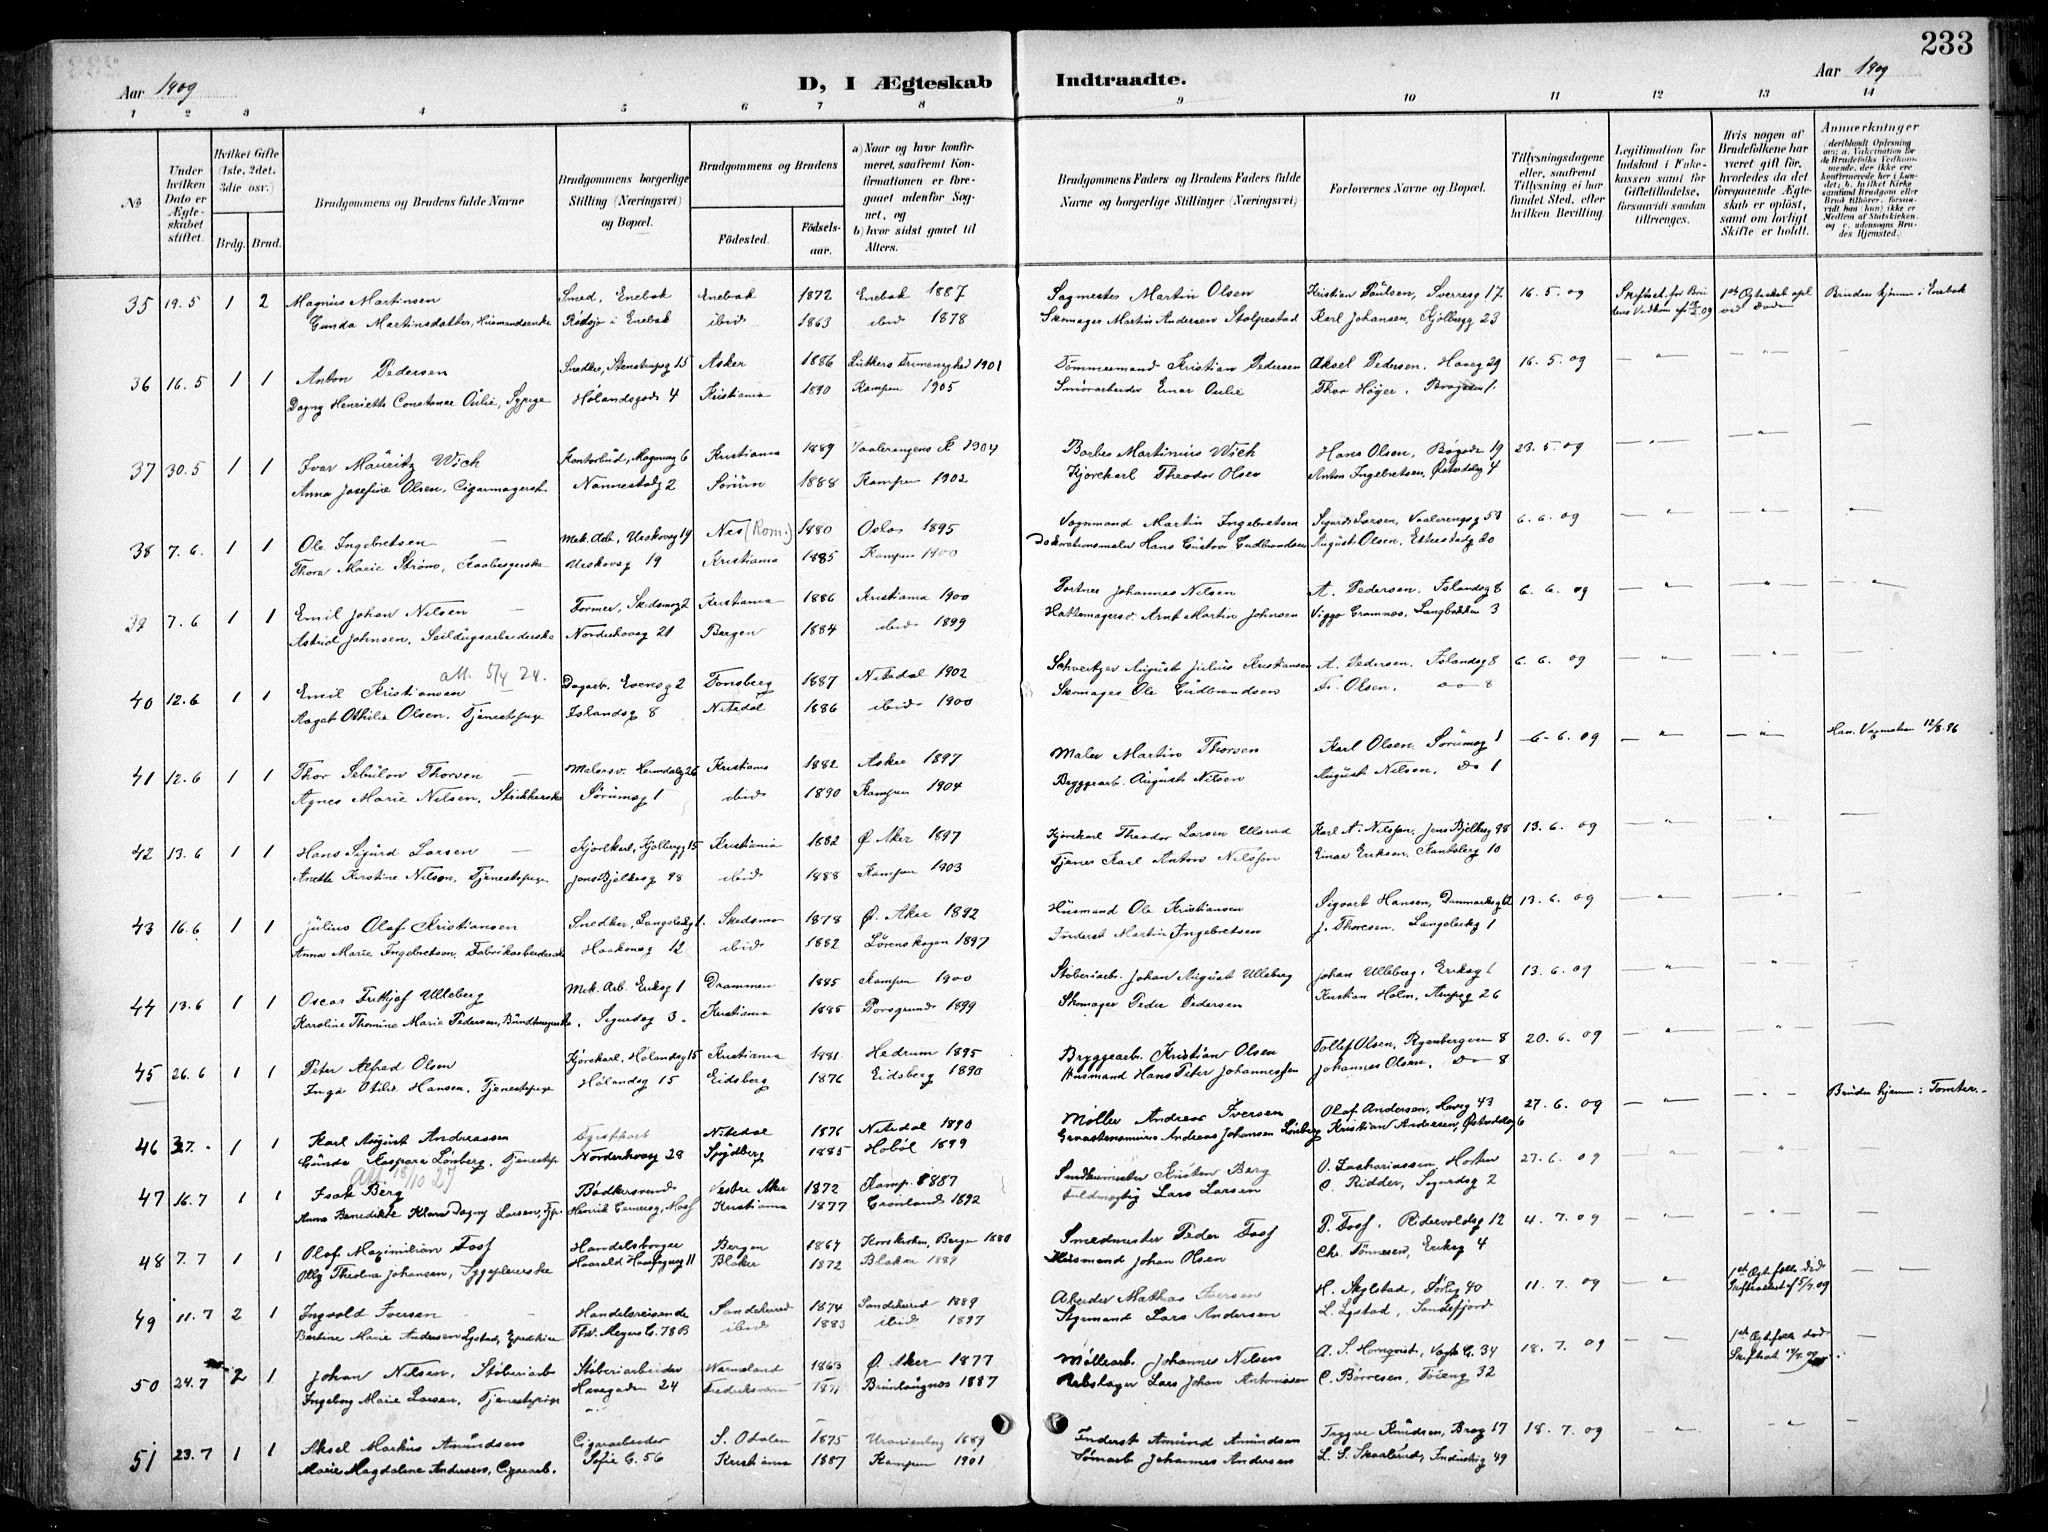 233
Aar 1909
D, I Ægteskab Indtraadte.
Aar 1909
1 2 3 4 5 6 7 8 9 10 11 12 13 14
№
Under hvilken Dato er Ægteskabet stiftet.
Hvilket Gifte (1ste, 2det, 3die osv.)
Brdg. Brud.
Brudgommens og Brudens fulde Navne
Brudgommens borgerlige Stilling (Næringsvei) og Bopæl.
Brudgommens og Brudens
Fødested. Fødselsaar.
a) Naar og hvor konfirmeret, saafremt Konfirmationen er foregaaet udenfor Sognet, og
b) hvor sidst gaaet til Alters.
Brudgommens Faders og Brudens Faders fulde Navne og borgerlige Stillinger (Næringsvei)
Forlovernes Navne og Bopæl.
Tillysningsdagene eller, saafremt Tillysning ei har fundet Sted, efter hvilken Bevilling.
Legitimation for Indskud i Enkekassen samt for Giftetilladelse, forsaavidt saadan tiltrænges.
Hvis nogen af Brudefolkene har været gift før, hvorledes da det foregaaende Ægteskab er opløst, samt om lovligt Skifte er holdt.
Anmerkninger (deriblandt Oplysning om: a. Vakcination for de Brudefolks Vedkommende, der ikke ere konfirmerede her i Landet; b. hvilket Kirkesamfund Brudgom eller Brud tilhører, forsaavidt han (hun) ikke er Medlem af Statskirken, og c. udensogns Brudes Hjemsted.)
35 19.5 1 2 Magnus Martinsen Smed, Enebak Enebak 1872 Enebak 1887 Sagmester Martin Olsen Kristian Paulsen, Sverresg 17 16.5.09 1ste Ægteskab opl. ved Døden Brudens hjem: Enebak
Gunda Martinsdatter, Rødsjø i Enebak ibid 1863 ibid 1878 Skomager Martin Andersen Stolpestad Karl Johansen, Kjølbergg 23
36 16.5 1 1 Anton Pedersen Snedker, Stenstrupsg 15 Asker 1886 1901 Tømmermand Kristian Pedersen Aksel Pedersen, Haveg 29 16.5.09
Dagny Henriette Constance Oulie, Sypige Hølandsgade 4 Kristiania 1890 Kampen 1905 Smørarbeider Einar Oulie Thor Høyer,
37 30.5 1 1 Ivar Mauritz Wich Kontorbud, 6 Kristiania 1889 Vaalerengens K 1904 Barber Martinius Wich Hans Olsen, Bøgade 19 23.5.09
Anna Josefine Olsen, Cigarmagerske Nannestadg 2 Sørum 1888 Kampen 1902 Kjørekarl Theodor Olsen Anton Ingebretsen, Østerdalsg 4
38 7.6. 1 1 Ole Ingebretsen Mek. Arb. Urskovg 19 Nes (Rom.) 1880 Oslo 1895 Vognmand Martin Ingebretsen Sigurd Larsen, Vaalerengsg 6.6.09
Thora Marie Strøm, Urskovg 19 Kristiania 1885 Kampen 1900 Dekorationsmaler Hans Gustav Gudbrandsen August Olsen, Etterstadg 20
39 7.6 1 1 Emil Johan Nilsen Former, Skedsmog 2 Kristiania 1886 Kristiania 1900 Portner Johannes Nilsen A. Pedersen, Islandsg 8 6.6.09
Astrid Johnsen, Seildugsarbeiderske Norderhovsg 21 Bergen 1884 ibid 1899 Hattemagersv. Arnt Martin Johnsen Viggo Gramnes, Langbakken 3
att. 5/4 24.
40 12.6 1 1 Emil Kristiansen Dagarb. Evensg 2 Tønsberg 1887 Nitedal 1902 Schveitzer August Julius Kristiansen A. Pedersen, Islandsg 8 6.6.09
Aagot Othilie Olsen, Tjenestepige Islandsg 8 Nitedal 1886 ibid 1900 Skomager Ole Gudbrandsen Fr. Olsen, 8
41 12.6 1 1 Thor Sebulon Thorsen Malersv. Heimdalsg 26 Kristiania 1882 Asker 1897 Maler Martin Thorsen Karl Olsen, Sørumsg 1 6.6.09 12/8.86
Agnes Marie Nilsen, Strikkerske Sørumsg 1 ibid 1890 Kampen 1904 Bryggerarb. August Nilsen August Nilsen, Do 1
42 13.6 1 1 Hans Sigurd Larsen Kjørekarl, Kjølbergg 15 Kristiania 1882 Ø. Aker 1897 Kjørekarl Theodor Larsen Ulsrud Karl A. Nilssen, Jens Bjelkesg 98 13.6.09
Anette Kirstine Nilsen, Tjenestepige Jens Bjelkesg 98 ibid 1888 Kampen 1903 Tjener Karl Anton Nilssen Einar Eriksen, Kantsleg 10
43 16.6 1 1 Julius Olaf Kristiansen Snedker, Langelsg 1. Skedsmo 1878 Ø. Aker 1892 Husmand Ole Kristiansen Sigvart Hansen, Danmarksg 13.6.09
Anna Marie Ingebretsen, Fabrikarbeiderske Haakonsg 12 ibid 1882 Lørenskogen 1897 Inderst Martin Ingebretsen J. Thoresen, 1
44 13.6 1 1 Oscar Frithjof Ulleberg Mek. Arb. Eriksg 1 Drammen 1885 Kampen 1900 Støberiarb. Johan August Ulleberg Johan Ulleberg, Eriksg 1 13.6.09
Karoline Thomine Marie Pedersen, Sigurdsg 3. Kristiania 1885 Porsgrund 1899 Skomager Peder Pedersen Kristian Holm, 26
45 26.6 1 1 Peter Alfred Olsen Kjørekarl, Hølandsg 15 Kristiania 1881 Hedrum 1895 Bryggearb. Kristian Olsen Tollef Olsen, Ryenbergveien 8 20.6.09
Inga Otilie Hansen, Tjenestepige Hølandsg 15 Eidsberg 1876 Eidsberg 1890 Husmand Hans Peter Johannessen Johannes Olsen, Do 8
46 3.7. 1 1 Karl August Andreassen Nitedal 1876 Nitedal 1890 Møller Andreas Iversen Olaf Andersen, Haveg 43 27.6.09 Bruden hjem: Tomter.
Gunda Kaspara Lønberg, Tjenestep. Norderhovsg 28 Spydberg 1885 Hobøl 1899 Andreas Johansen Lønberg Kristian Andersen, Østerdalsg 6
att. 18/10 27
47 16.7 1 1 Isak Berg Bødkersvend Vestre Aker 1872 Kamp. 1887 Kristen Berg O. Zachariassen, Horten 27.6.09
Anna Benedikte Klara Dagny Larsen, Kristiania 1877 Grønland 1892 Fuldmægtig Lars Larsen C. Ridder, Sigurdsg 2
48 7.7 1 1 Olaf Maximilian Foss Handelsborger Bergen 1864 Korskirken, Bergen 1880 Smedmester Peder Foss P. Foss, Ridervoldsg 12 4.7.09
Olly Theoline Johansen, Haarald Haarfagersg 11 Blaker 1872 Blaker 1887 Husmand Johan Olsen Chr. Tønnesen, Eriksg 4
49 11.7 2 1 Ingvold Iversen Handelsreisende Sandeherred 1874 Sandeherred 1889 Arbeider Mathias Iversen H. Sklstad, 40 11.7.09
Bertine Marie Andersen Lystad, Thv. Meyers G. 78B ibid 1883 ibid 1897 Styrmand Lars Andersen L. Lystad, Sandefjord
50 24.7 2 1 Johan Nilsen, Støberiarb Støberiarbeider Wærmeland 1863 Ø. Aker 1877 Møllearb. Johannes Nilsen A. S. Hornqvist, Vogts G. 34 18.7.09
Ingeborg Marie Larsen, Tjenestepige Havegaden 24 Fredriksværn Brunlaugnes 1887 Rebslager Lars Johan Antonissen C. Børresen, Tøieng 32
51 23.7 1 1 Aksel Markus Amundsen Cigararbeider S. Odalen 1875 Uranienborg 1889 Inderst Amund Amundsen Trygve Knudsen, Brog 17 18.7.09
Marie Magdalene Andersen, Cigararb. Sofie G. 56 Kristiania 1887 Kampen 1901 Sømarb Johannes Andersen L. S. Skaalerud, Industrig 49